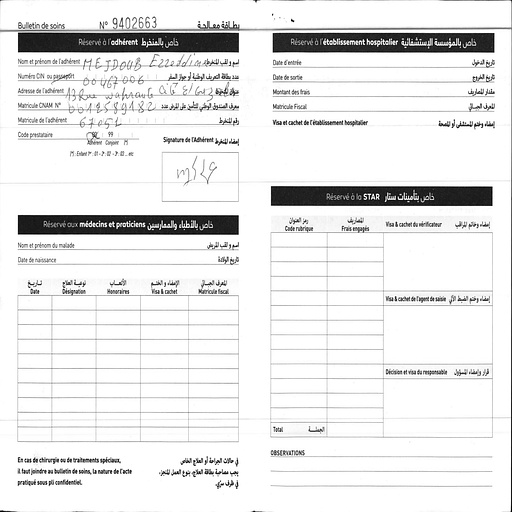 Bulletin de soins N° 9402663 بطاقة معالجة
Réservé à l'adhérent خاص بالمنخرط
Nom et prénom de l'adhérent MEJDOUB Ezzeddine اسم و لقب المنخرط
Numéro CIN ou passeport 00467006 عدد بطاقة التعريف الوطنية أو جواز السفر
Adresse de l'adhérent 13 Rue عنوان المنخرط
Matricule CNAM N° معرف الصندوق الوطني للتأمين على المرض عدد
Matricule de l'adhérent 67051 رقم المنخرط
Code prestataire 00 99
Adhérent Conjoint
Signature de l'Adhérent إمضاء المنخرط
Réservé aux médecins et praticiens خاص بالأطباء والممارسين
Nom et prénom du malade اسم و لقب المريض
Date de naissance تاريخ الولادة
تاريخ نوعية العلاج الأتعاب الإمضاء و الختم المعرف الجبائي
Date Désignation Honoraires Visa & cachet Matricule fiscal
En cas de chirurgie ou de traitements spéciaux,
il faut joindre au bulletin de soins, la nature de l'acte
pratiqué sous pli confidentiel.
في حالات الجراحة أو العلاج الخاص
يجب مصاحبة بطاقة العلاج، بنوع العمل المنجز،
في ظرف سري.
Réservé à l'établissement hospitalier خاص بالمؤسسة الإستشفائية
Date d'entrée تاريخ الدخول
Date de sortie تاريخ الخروج
Montant des frais مقدار المصاريف
Matricule Fiscal المعرف الجبائي
Visa et cachet de l'établissement hospitalier إمضاء وختم المستشفى أو المصحة
Réservé à la STAR خاص بتأمينات ستار
رمز العنوان المصاريف
Code rubrique Frais engagés
Visa & cachet du vérificateur إمضاء وخاتم المراقب
Visa & cachet de l'agent de saisie إمضاء وختم الضبط الآلي
Décision et visa du responsable قرار وإمضاء المسؤول
Total الجملة
OBSERVATIONS